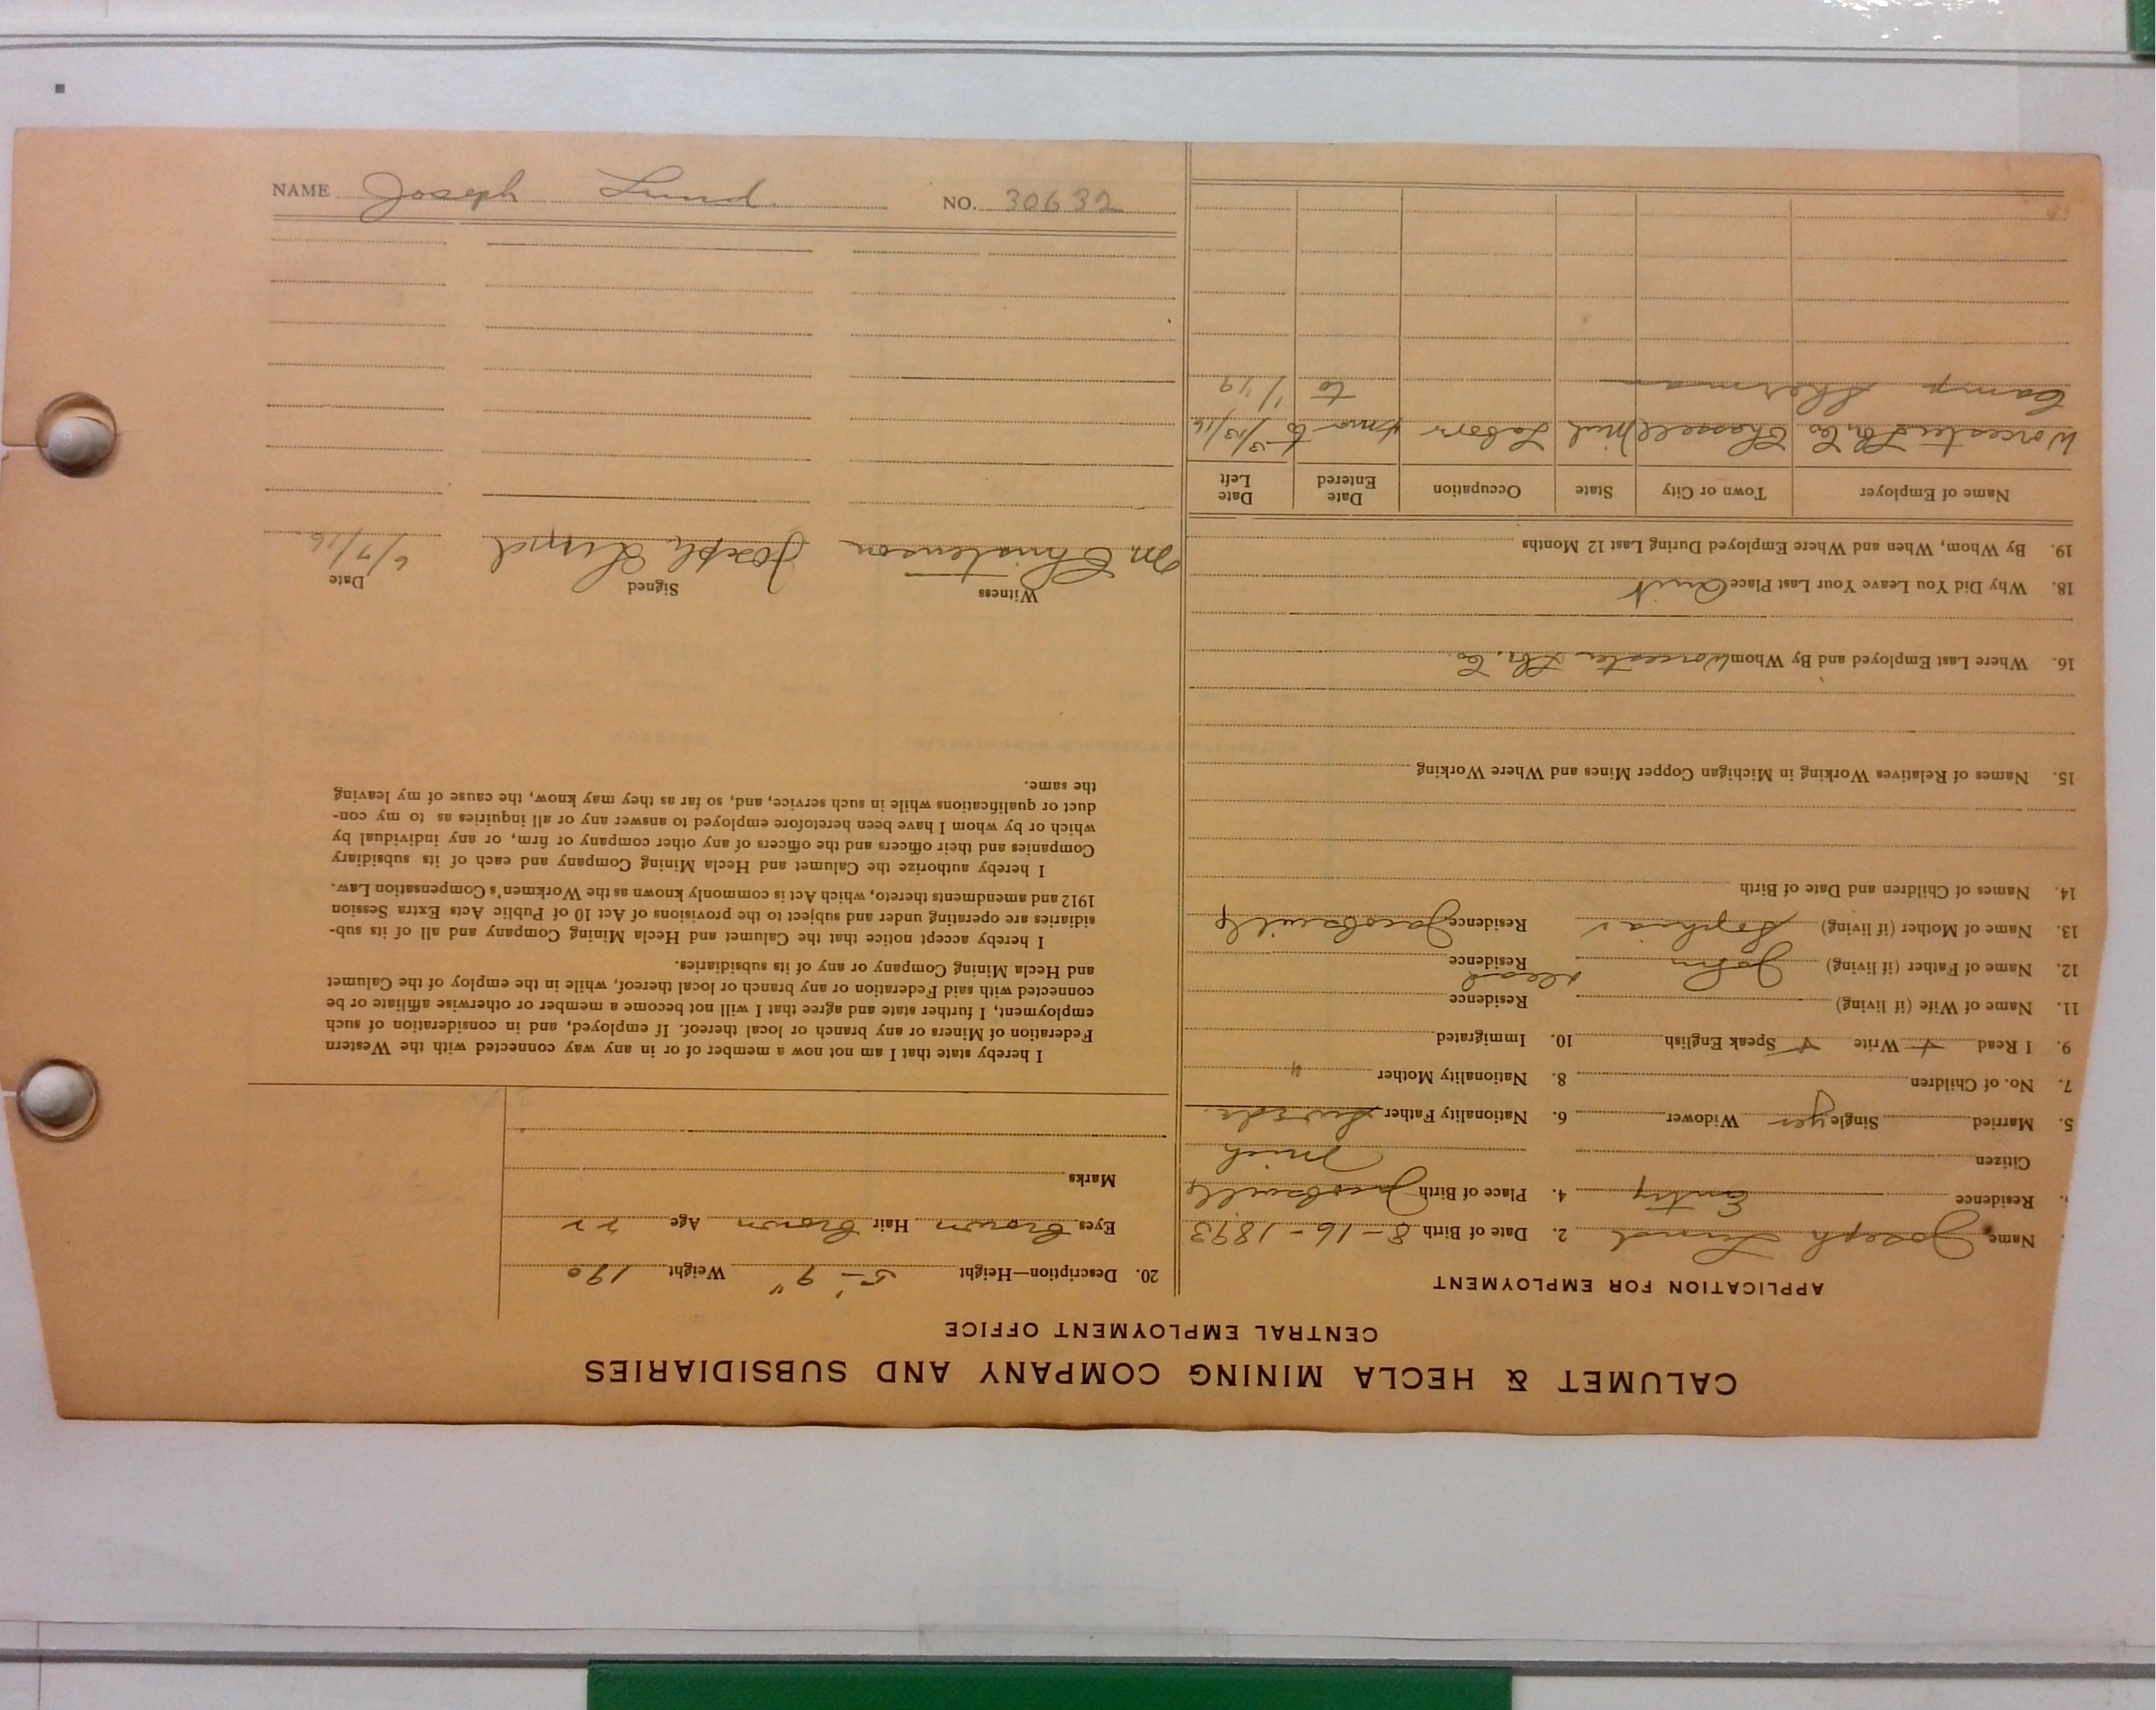 CALUMET & HECLA MINING COMPANY AND SUBSIDIARIES
CENTRAL EMPLOYMENT OFFICE
APPLICATION FOR EMPLOYMENT
Name Joseph Lund 2. Date of Birth 8-16-1893
Residence Entry 4. Place of Birth Jacobsville
Citizen Mich
5. Married Single yes Widower 6. Nationality Father Swede
7. No. of Children 8. Nationality Mother "
9. I Read Write Speak English 10. Immigrated
11. Name of Wife (if living) Residence
12. Name of Father (if living) John dead Residence
13. Name of Mother (if living) Sophia Residence Jacobsville
14. Names of Children and Date of Birth
15. Names of Relatives Working in Michigan Copper Mines and Where Working
16. Where Last Employed and By Whom Worcester Lbr. Co.
18. Why Did You Leave Your Last Place Quit
19. By Whom, When and Where Employed During Last 12 Months
Name of Employer Town or City State Occupation Date Entered Date Left
Worcester Lbr. Co. Chassell Mich Labor to 3/13/16
Camp Sherman to 1/19
20. Description—Height 5'-9" Weight 190
Eyes Brown Hair Brown Age 22
Marks
I hereby state that I am not now a member of or in any way connected with the Western
Federation of Miners or any branch or local thereof. If employed, and in consideration of such
employment, I further state and agree that I will not become a member or otherwise affiliate or be
connected with said Federation or any branch or local thereof, while in the employ of the Calumet
and Hecla Mining Company or any of its subsidiaries.
I hereby accept notice that the Calumet and Hecla Mining Company and all of its sub-
sidiaries are operating under and subject to the provisions of Act 10 of Public Acts Extra Session
1912 and amendments thereto, which Act is commonly known as the Workmen's Compensation Law.
I hereby authorize the Calumet and Hecla Mining Company and each of its subsidiary
Companies and their officers and the officers of any other company or firm, or any individual by
which or by whom I have been heretofore employed to answer any or all inquiries as to my con-
duct or qualifications while in such service, and, so far as they may know, the cause of my leaving
the same.
Witness Signed Date
M Christenson Joseph Lund 6/7/16
NAME Joseph Lund NO. 30632